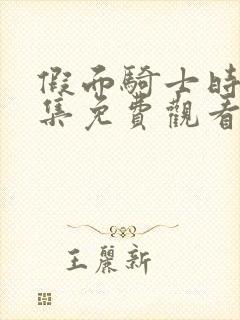 假面騎士時
集免費觀看
王麗新